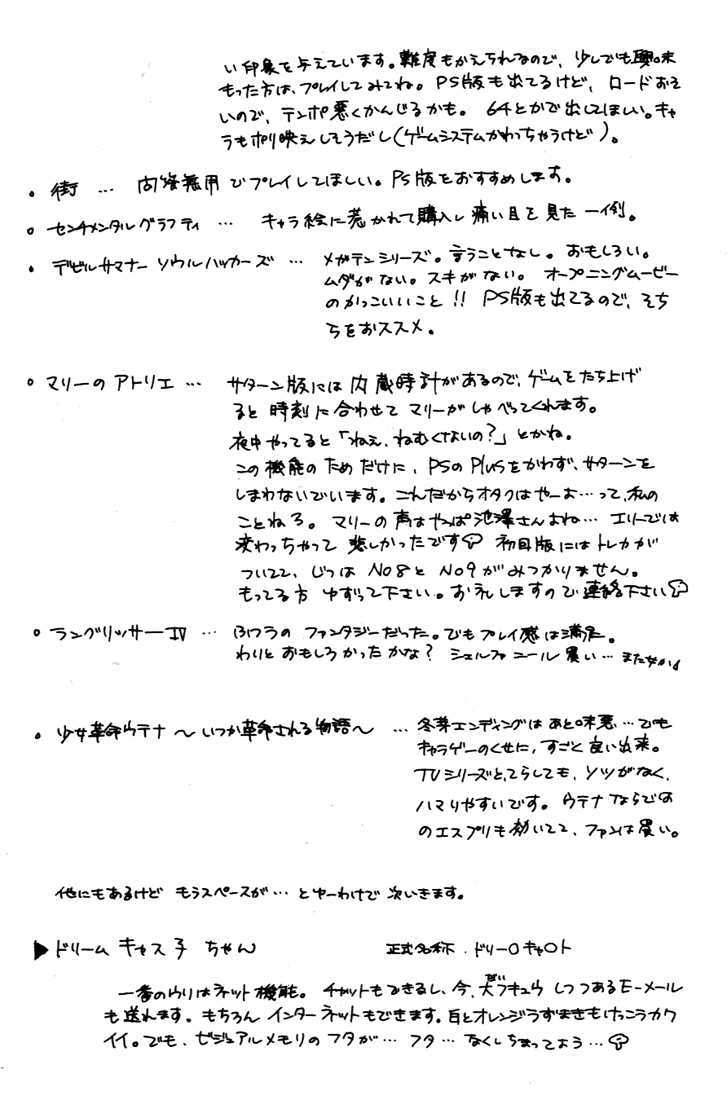 い印象を与えています。難度もかえられるので、少しでも興味
もった方は、プレイしてみてね。PS版も出てるけど、ロードおそ
いので、テンポ悪くかんじるかも。64とかで出してほしい。キャ
ラもポリ映えしそうだし(ゲームシステムかわっちゃうけど)。
・街 … 問答無用でプレイしてほしい。PS版をおすすめします。
・センチメンタルグラフティ … キャラ絵に惹かれて購入し痛い目を見た一例。
・デビルサマナー ソウルハッカーズ … メガテンシリーズ。言うことなし。おもしろい。
ムダがない。スキがない。オープニングムービー
のかっこいいこと!! PS版も出てるので、そち
らをおススメ。
・マリーのアトリエ … サターン版には内蔵時計があるので、ゲームをたち上げ
ると時刻に合わせてマリーがしゃべってくれます。
夜中やってると「ねえ、ねむくないの?」とかね。
この機能のためだけに、PSのPlusをかわず、サターンを
しまわないでいます。これだからオタクはやーよ…って、私の
ことねろ。マリーの声はやっぱ池澤さんよね… エリーでは
変わっちゃって悲しかったです 初回版にはトレカが
ついてて、じつはNo8とNo9がみつかりません。
もってる方ゆずって下さい。お礼しますので連絡下さい
・ラングリッサーⅣ … ふつうのファンタジーだった。でもプレイ感は満足。
わりとおもしろかったかな? シェルファニール買い…
・少女革命ウテナ ~いつか革命される物語~ … 冬芽エンディングはあと味悪…でも
キャラゲーのくせに、すごく良い出来。
TVシリーズとてらしても、ソツがなく、
ハマりやすいです。ウテナならでは
のエスプリも効いてて、ファンは買い。
他にもあるけど もうスペースが… とゆーわけで 次いきます。
▶ドリームキャス子ちゃん 正式名称・ドリー○キャ○ト
一番のウリはネット機能。チャットもできるし、今、大ブキュウしつつあるE-メール
も送れます。もちろんインターネットもできます。白とオレンジうずまきもけっこうカワ
イイ。でも、ビジュアルメモリのフタが… フタ… なくしちまってよう…